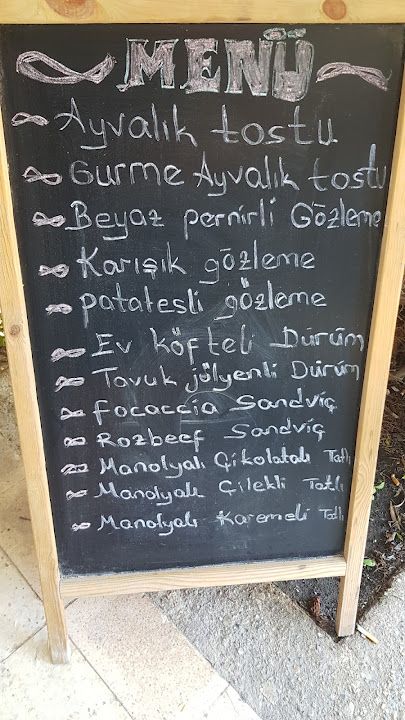 MENÜ
Ayvalık tostu
Gurme Ayvalık tostu
Beyaz pernirli Gözleme
Karışık gözleme
patatesli gözleme
Ev köfteli Dürüm
Tavuk jölyenli Dürüm
focaccia Sandviç
Rozbeef Sandviç
Manolyalı Çikolatalı Tatlı
Manolyalı Çilekli Tatlı
Manolyalı Karemeli Tatlı